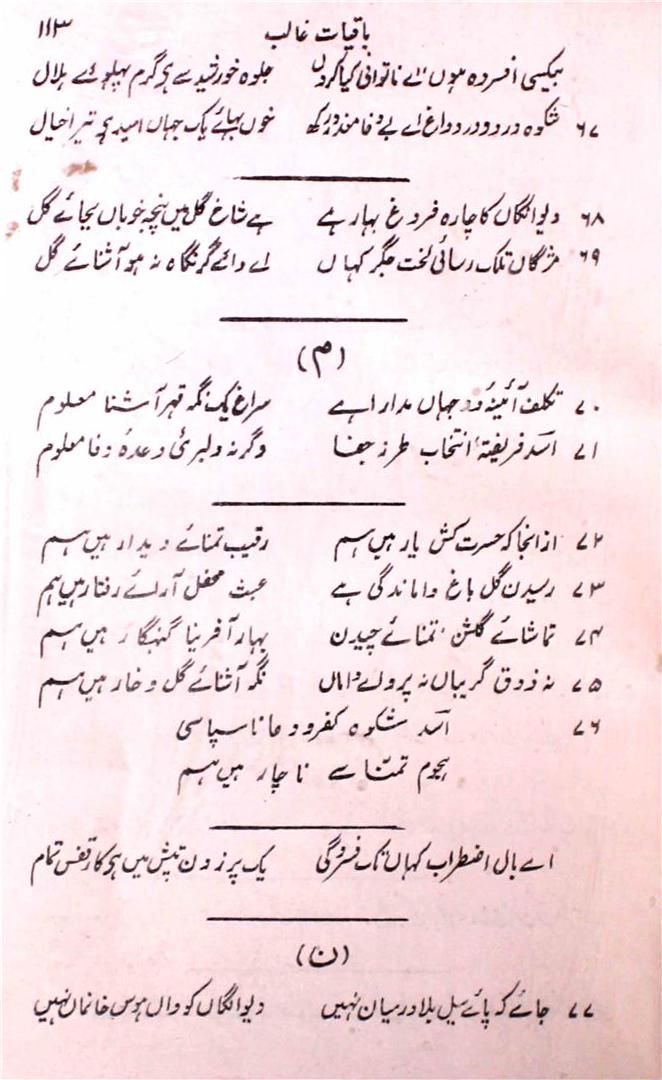 باقیات غالب ۱۱۳
بیکسی افسردہ ہوں اے ناتوانی کیا کروں جلوہ خورشید سے ہی گرم پہلوئے ہلال
۶۷ شکوہ درد و درد داغ اے بے وفا معذور رکھ خوں بہائے یک جہاں امید ہی تیرا خیال
۶۸ دیوانگاں کا چارہ فروغ بہار ہے ہے شاخ گل میں پنجہ خوباں بجائے گل
۶۹ مژگاں تلک رسائی لخت جگر کہاں اے وائے گر نگاہ نہ ہو آشنائے گل
(م)
۷۰ تکلف آئینۂ دو جہاں مدارا ہے سراغ یک نگہ قہر آشنا معلوم
۷۱ اسد فریفتۂ انتخاب طرز جفا وگرنہ دلبریٔ وعدۂ وفا معلوم
۷۲ از انجا کہ حسرت کش یار ہیں ہم رقیب تمنائے دیدار ہیں ہم
۷۳ رسیدن گل باغ واماندگی ہے عبث محفل آرائے رفتار ہیں ہم
۷۴ تماشائے گلشن، تمنائے چیدن بہار آفرینا گنہگار ہیں ہم
۷۵ نہ ذوق گریباں نہ پروائے داماں نگہ آشنائے گل و خار ہیں ہم
۷۶ اسد شکوہ کفر و دعا ناسپاسی
ہجوم تمنا سے ناچار ہیں ہم
اے بال اضطراب کہاں تک فسردگی یک پر زدن تپش میں ہی کار قفس تمام
(ن)
۷۷ جائے کہ پائے سیل بلا درمیاں نہیں دیوانگاں کو واں ہوس خانماں نہیں